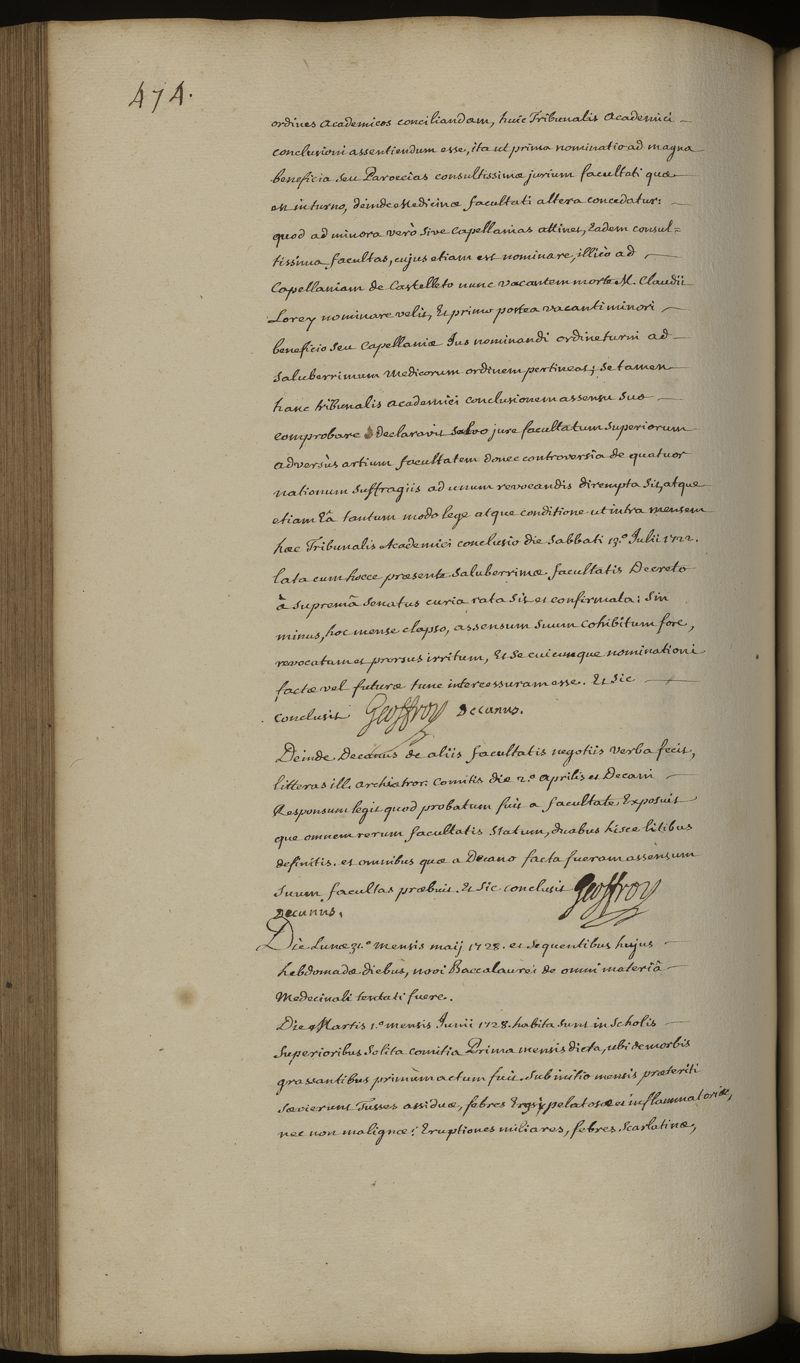 474.
ordines Academicos conciliandam, huic Tribunalis Academici
conclusioni assentiendum esse, ita ut prima nominatio ad magna
beneficia seu Paroecias consultissimæ jurium facultati quæ
est in turno, deinde Medicinæ facultati altera concedatur:
quod ad minora verò sive Capellanias attinet, Eadem consul=
tissima facultas, cujus etiam est nominare, illico ad
Capellaniam de Castelleto nunc vacantem morte M. Claudii
Lorey nominare velit, Et primo postea vacanti minori
beneficio seu Capellaniæ Jus nominandi ordine turni ad
Saluberrimum Medicorum ordinem pertineat; se tamen
hanc tribunalis Academici conclusionem assensu suo
comprobare declaravit salvo jure facultatum superiorum
adversùs artium facultatem donec controversia de quatuor
nationum suffragiis ad unum revocandis dirempta sit, atque
etiam Eâ tantum modo lege atque conditione ut intra mensem
hæc Tribunalis Academici conclusio die Sabbati Julii 1722.
lata cum hocce præsente Saluberrimæ facultatis Decreto
â supremâ senatus curia rata sit et confirmata; sin
minus, hoc mense elapso, assensum suum cohibitum fore,
revocatum et prorsus irritum, Et se cuicumque nominationi
factæ vel futuræ tunc intercessuram esse. Et sic
conclusit Geoffroy Decanus.
Deinde Decanus de aliis facultatis negotiis verba fecit,
litteras ill. archiatror. comitis die 2.° aprilis et Decani
Responsum legit quod probatum fuit a facultate, Exposuit
que omnem rerum facultatis statum, duabus hisce litibus
definitis. et omnibus quæ a Decano facta fuerant assensum
suum facultas præbuit. Et sic conclusit Geoffroy
Decanus.
Die Lunæ 31.° mensis maij 1728. et sequentibus hujus
hebdomadæ diebus, novi Baccalaurei de omni materiâ
Medecinali tentati fuere.
Die Martis 1.° mensis Junii 1728. habita sunt in Scholis
superioribus solita comitia Prima mensis dicta, ubi de morbis
grassantibus primùm actum fuit. sub initio mensis præteriti
sævierunt Tusses assiduæ, febres Erysipelatosæ et inflammatoriæ,
nec non malignæ; Eruptiones miliares, febres scarlatinæ,